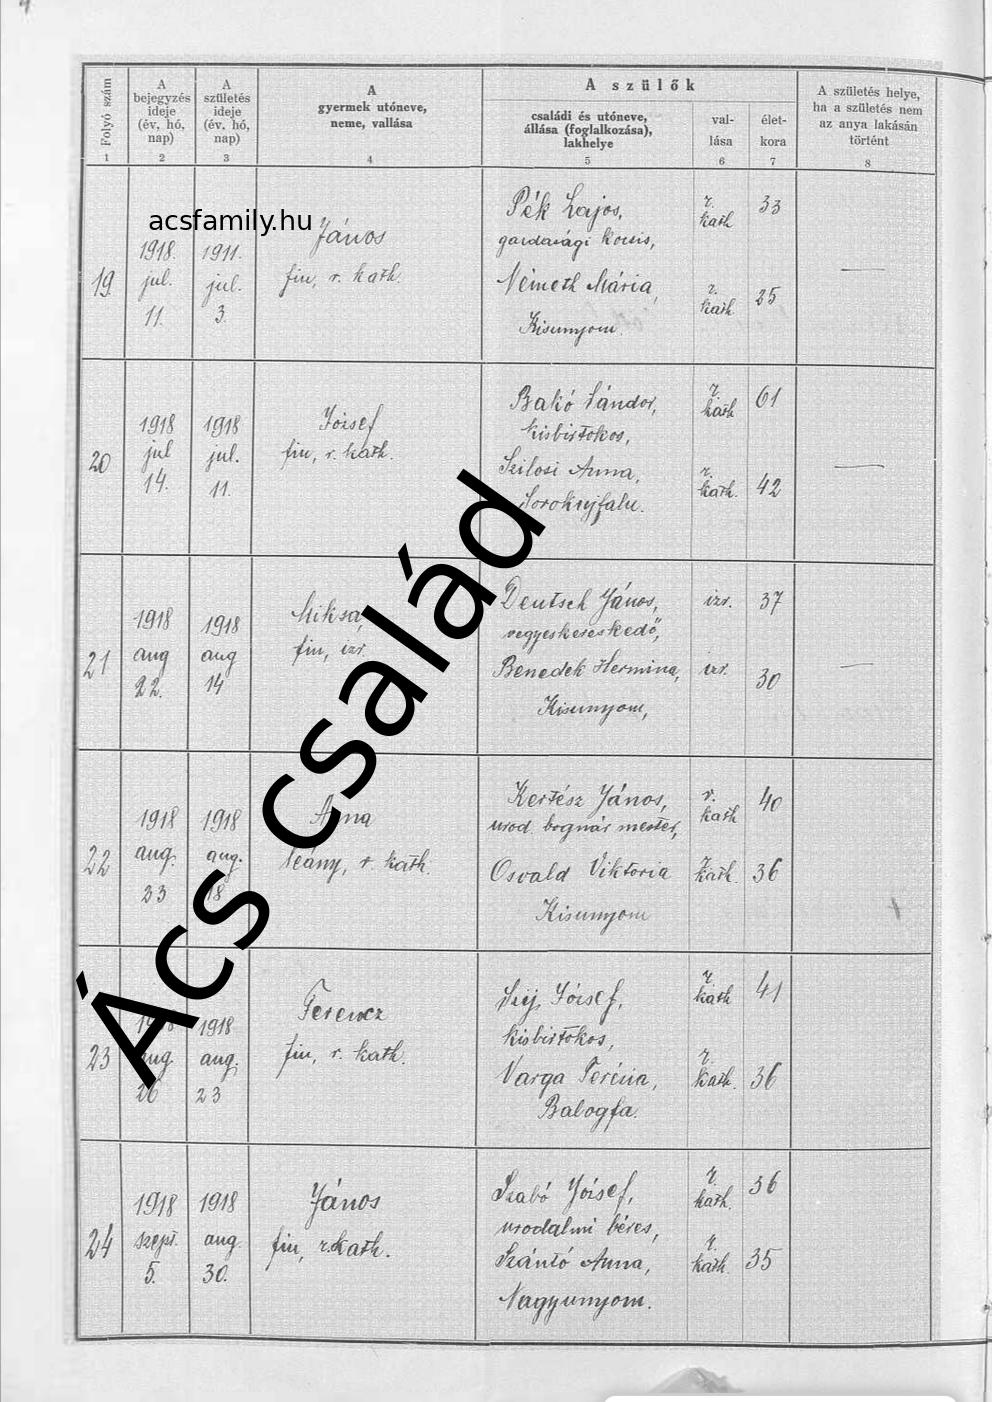 Folyó szám
A bejegyzés ideje (év, hó, nap)
A születés ideje (év, hó, nap)
A gyermek utóneve, neme, vallása
A szülők
családi és utóneve, állása (foglalkozása), lakhelye
val-
lása
élet-
kora
A születés helye, ha a születés nem az anya lakásán történt
1 2 3 4 5 6 7 8
acsfamily.hu
19
1918.
jul.
11.
1911.
jul.
3.
János
fiu, r. kath.
Pék Lajos,
gazdasági kocsis,
Németh Mária,
Kisunyom.
r. kath
33
r. kath
25
20
1918
jul
14.
1918
jul.
11.
József
fiu, r. kath.
Bakó Sándor,
kisbirtokos,
Szilosi Anna,
Sorokujfalu.
r. kath
61
r. kath.
42
21
1918
aug
22.
1918
aug
14
Miksa,
fiu, izr.
Deutsch János,
vegyeskereskedő,
Benedek Hermina,
Kisunyom,
izr.
37
izr.
30
22
1918
aug.
23
1918
aug.
18
Anna
leány, r. kath.
Kertész János,
urod. bognár mester,
Osvald Viktoria
Kisunyom
r. kath
40
r. kath.
36
23
1918
aug.
26
1918
aug.
23
Ferencz
fiu, r. kath.
Szij József,
kisbirtokos,
Varga Terézia,
Balogfa.
r. kath
41
r. kath.
36
24
1918
szept.
5.
1918
aug.
30.
János
fiu, r. kath.
Szabó József,
urodalmi béres,
Szántó Anna,
Nagyunyom.
r. kath.
36
r. kath.
35
Ács család